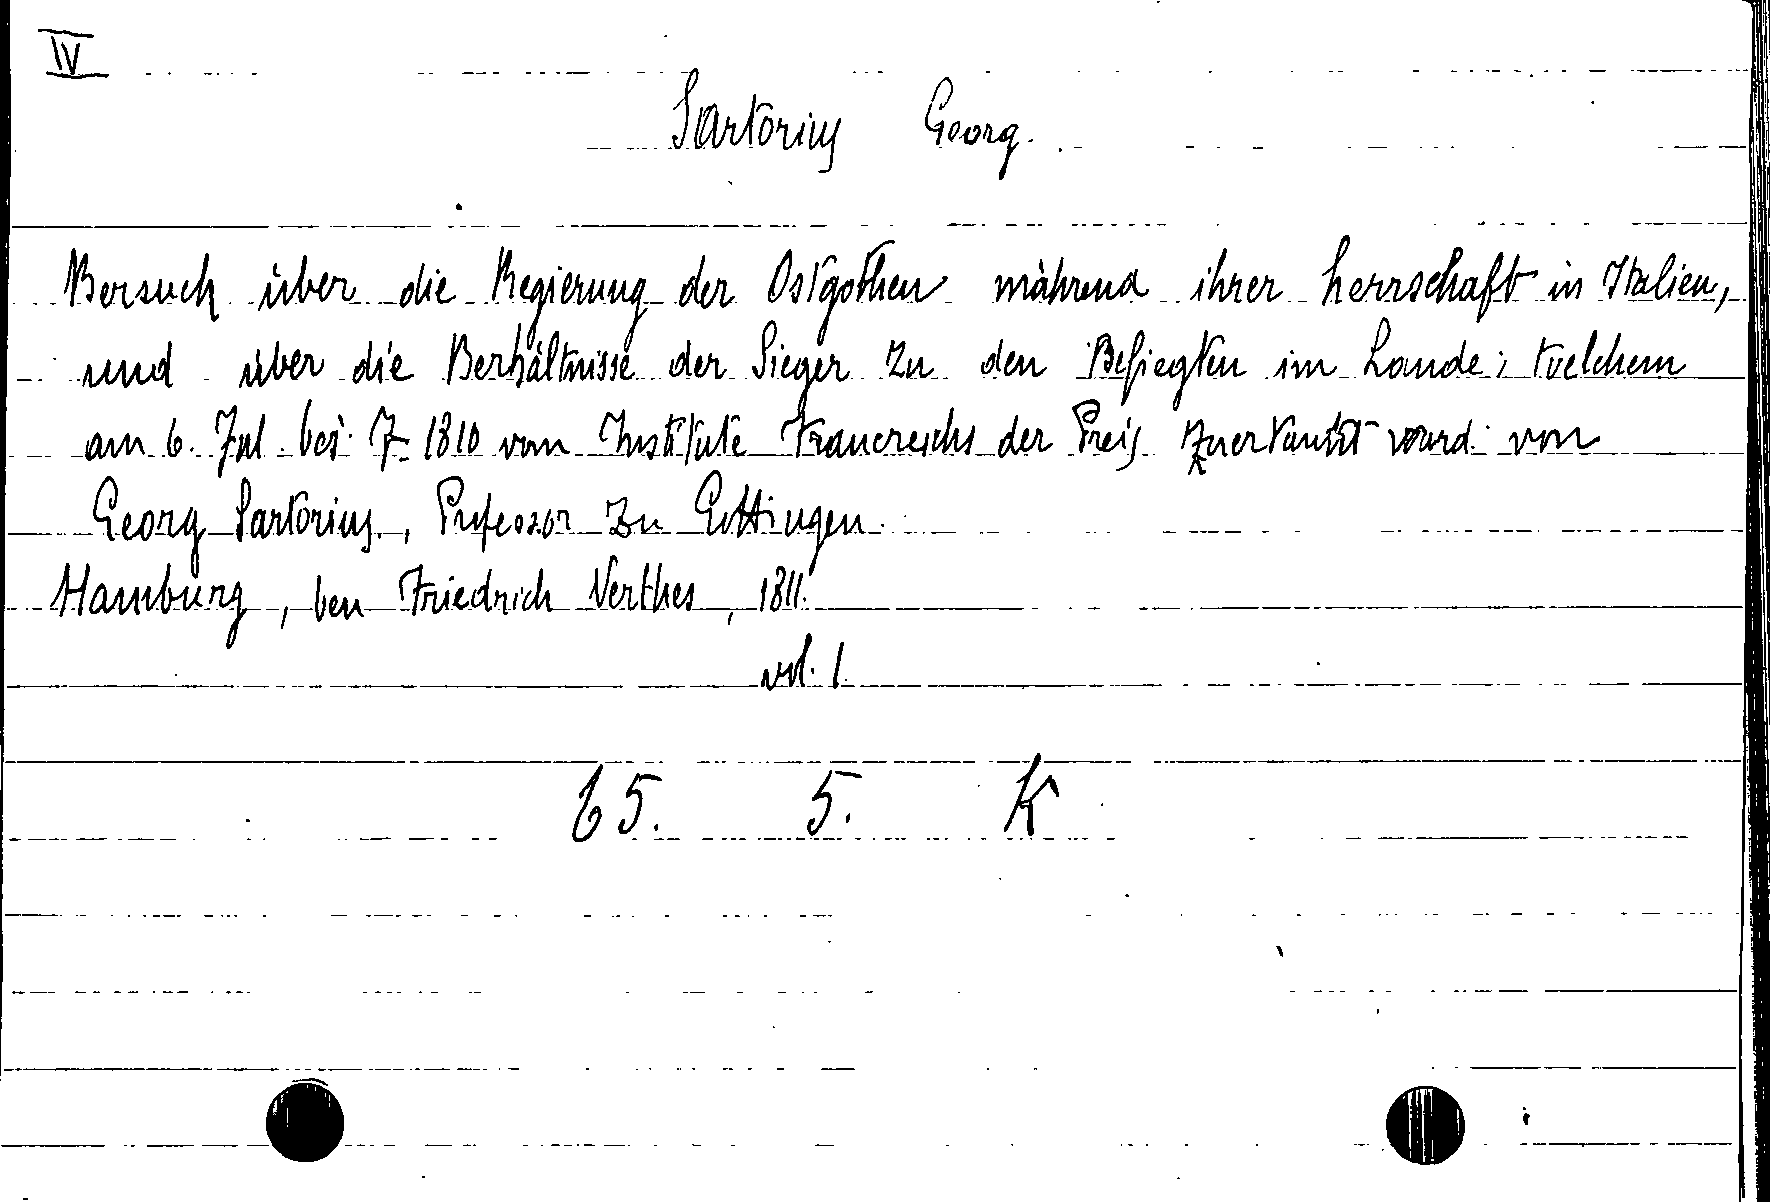 IV
Sartorius Georg.
Bersuch über die Regierung der Ostgothen während ihrer herrschaft in Italien,
und über die Berhältnisse der Sieger zu den Besiegten im Lande; welchem
am 6. Jul. bes J. 1810 vom Institute Francreichs der Preis zuerkannt ward von
Georg Sartorius, Professor zu Gottingen.
Hamburg, ben Friedrich Verthes, 1811.
vol. 1.
65. 5. K